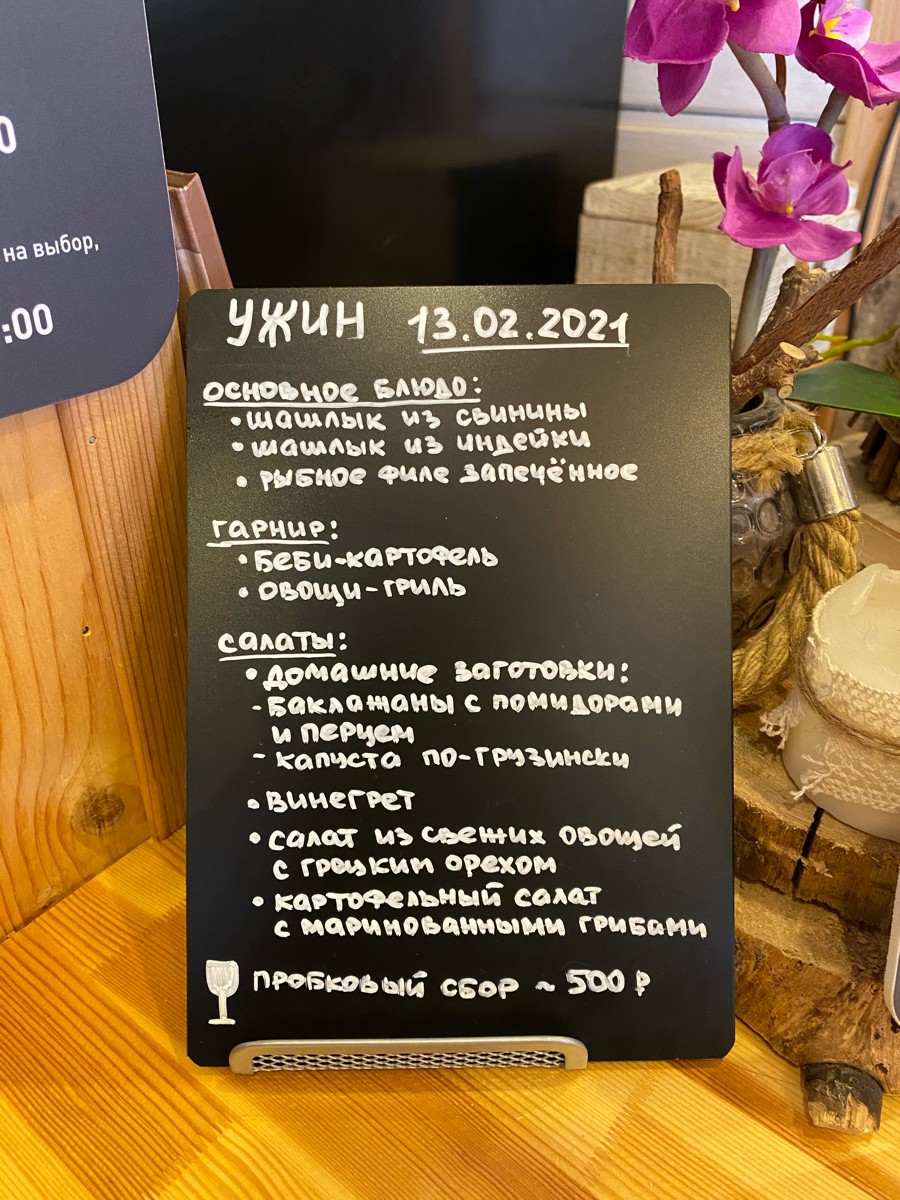 0
на выбор,
:00
УЖИН 13.02.2021
ОСНОВНОЕ БЛЮДО:
• ШАШЛЫК ИЗ СВИНИНЫ
• ШАШЛЫК ИЗ ИНДЕЙКИ
• РЫБНОЕ ФИЛЕ ЗАПЕЧЁННОЕ
ГАРНИР:
• БЕБИ-КАРТОФЕЛЬ
• ОВОЩИ-ГРИЛЬ
САЛАТЫ:
• ДОМАШНИЕ ЗАГОТОВКИ:
- БАКЛАЖАНЫ С ПОМИДОРАМИ
И ПЕРЦЕМ
- КАПУСТА ПО-ГРУЗИНСКИ
• ВИНЕГРЕТ
• САЛАТ ИЗ СВЕЖИХ ОВОЩЕЙ
С ГРЕЦКИМ ОРЕХОМ
• КАРТОФЕЛЬНЫЙ САЛАТ
С МАРИНОВАННЫМИ ГРИБАМИ
ПРОБКОВЫЙ СБОР ~ 500 ₽